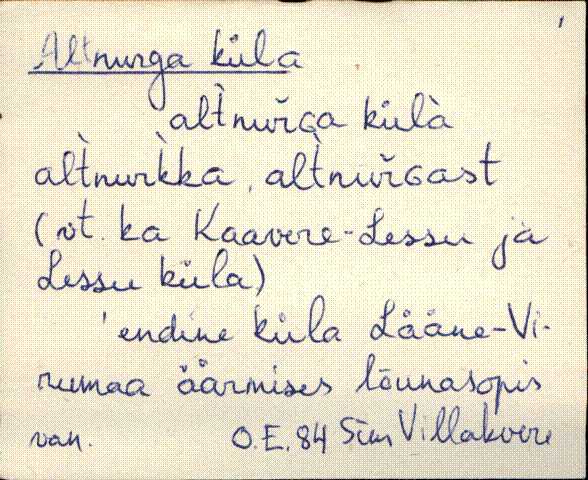 Altnurga küla
alt̀nuřGa külà
alt̀nurk̀ka, alt̀nuřGast
(vt. ka Kaavere-Lessu ja
Lessu küla)
'endine küla Lääne-Vi-
rumaa äärmises lõunasopis
van. O.E. 84 Sim Villakvere